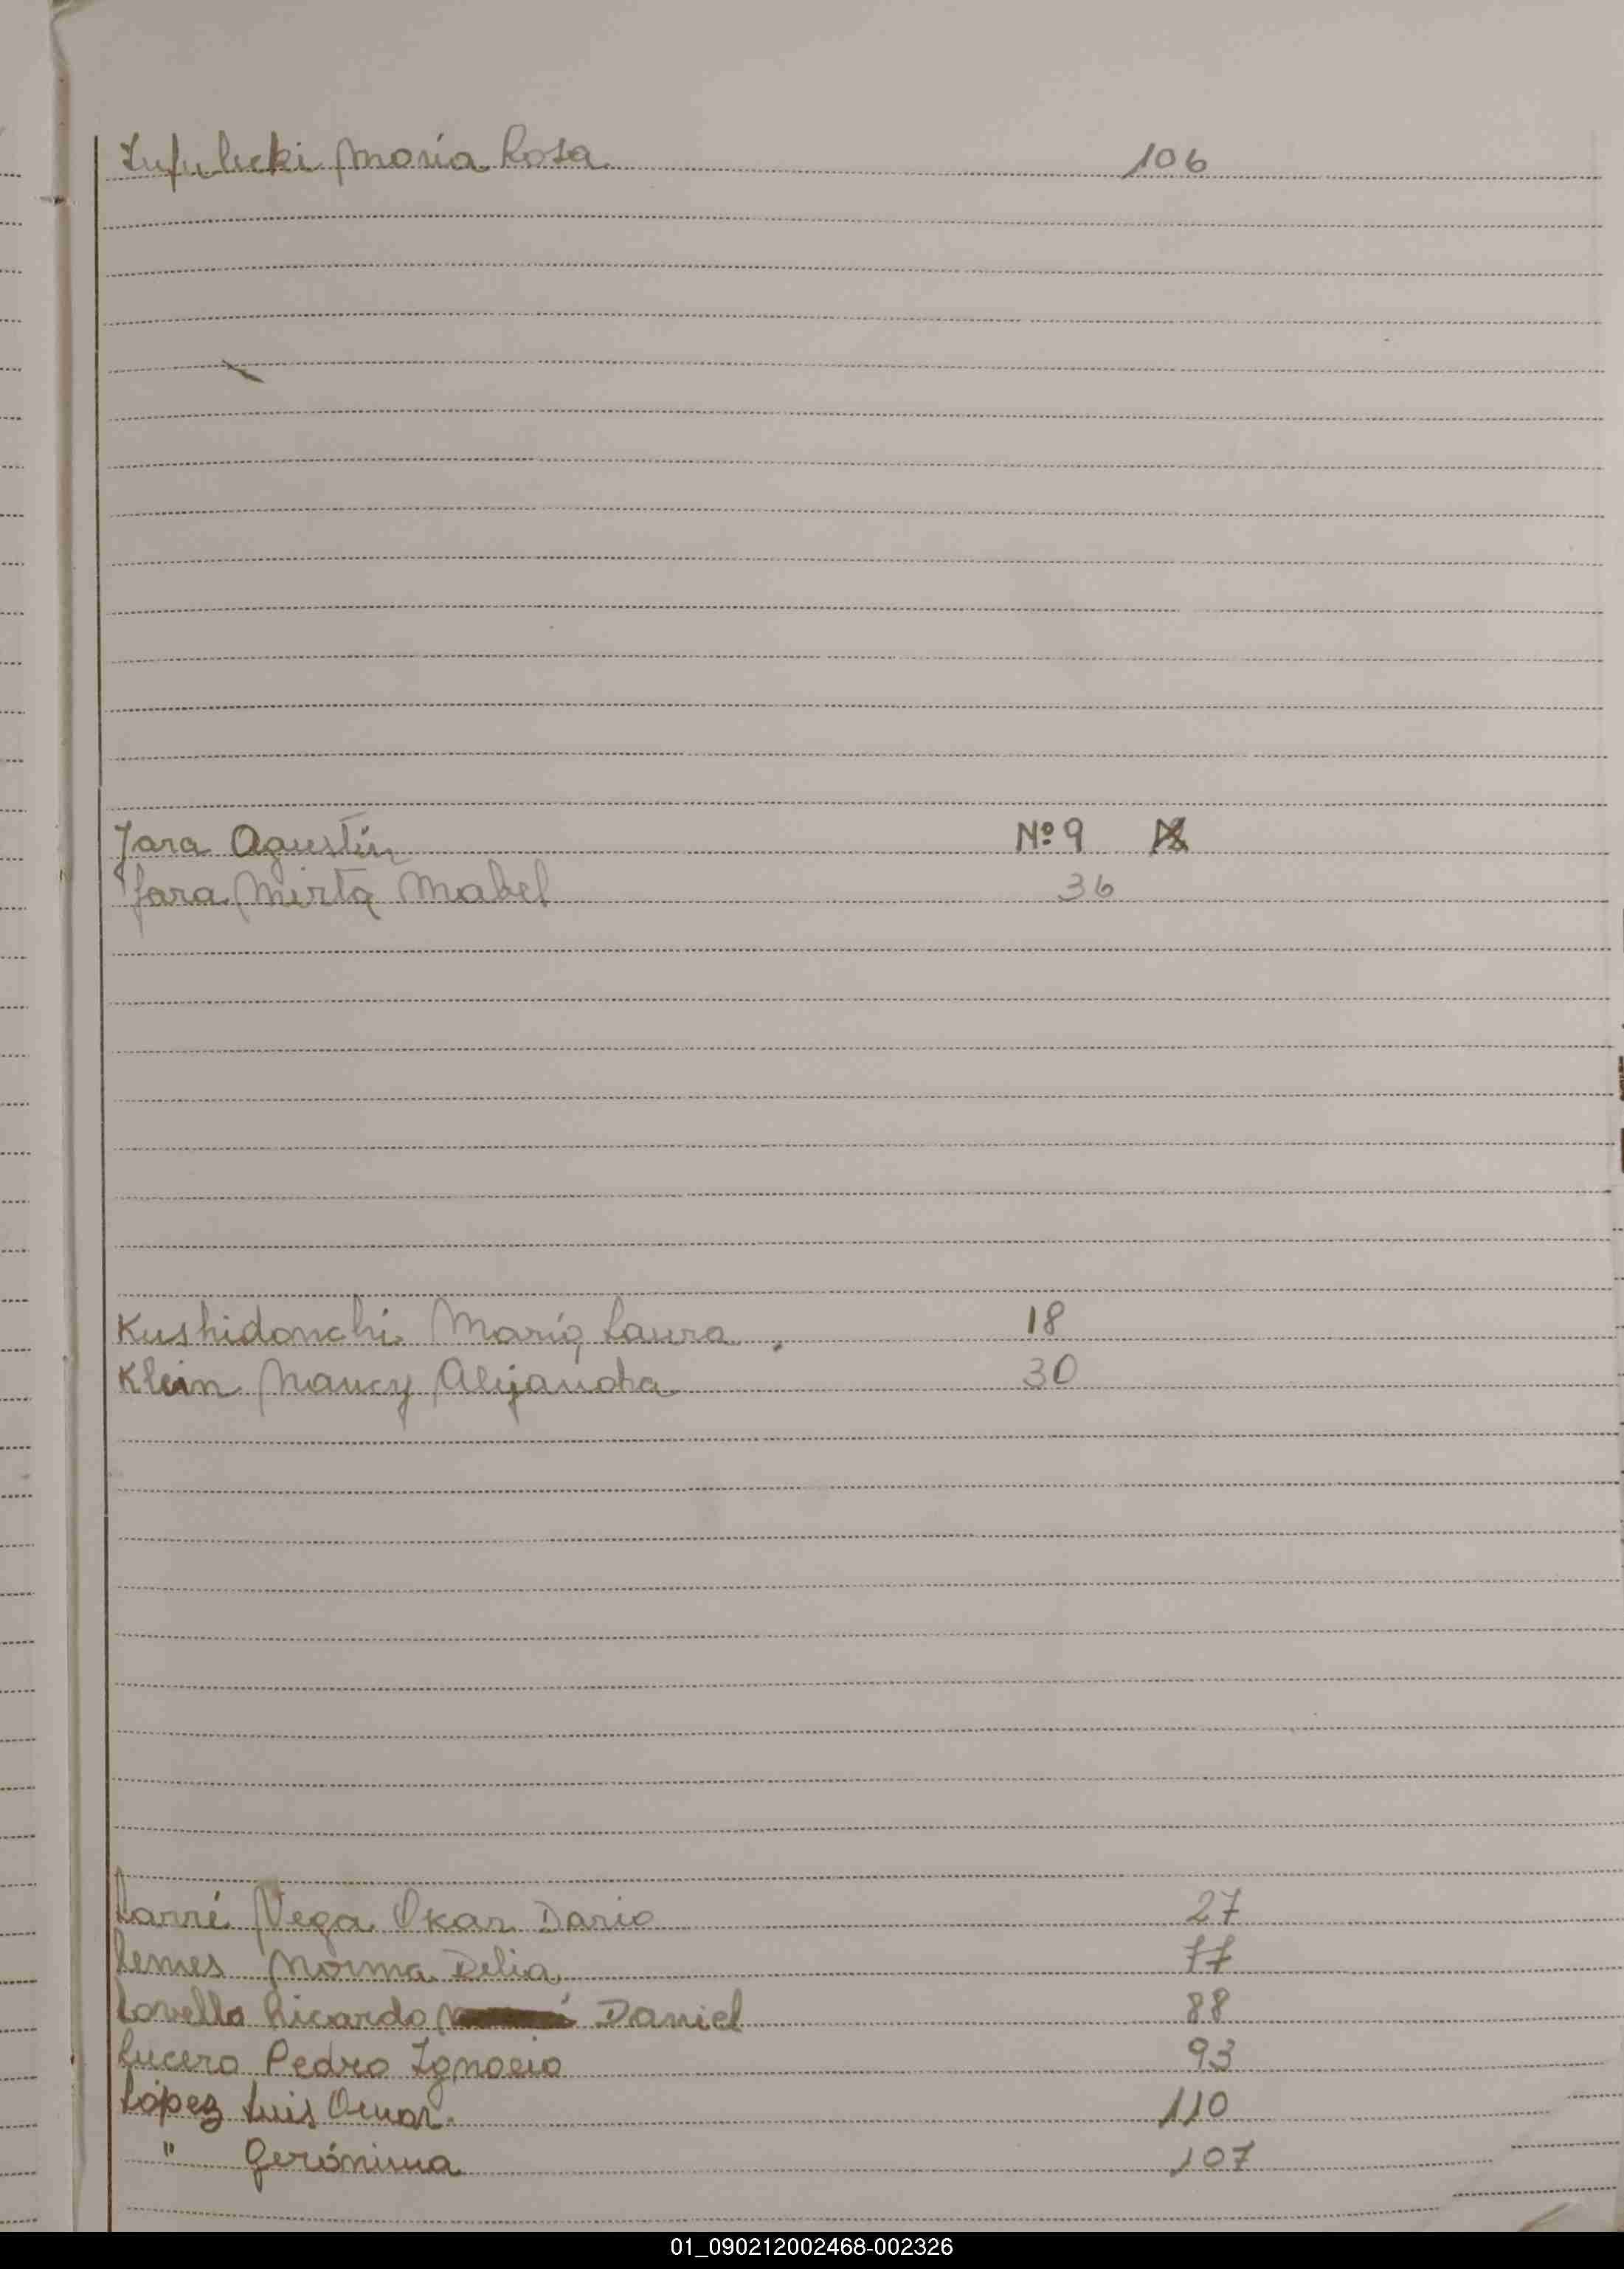 María Rosa 106
Jara Agustín Nº 9
Jara Mirta Mabel 36
Kushidonchi María Laura 18
Klein Nancy Alejandra 30
Larré Vega Oscar Dario 27
Lemes Norma Delia 77
Lovello Ricardo Daniel 88
Lucero Pedro Ignacio 93
López Luis Omar. 110
" Gerónima 107
01_090212002468-002326